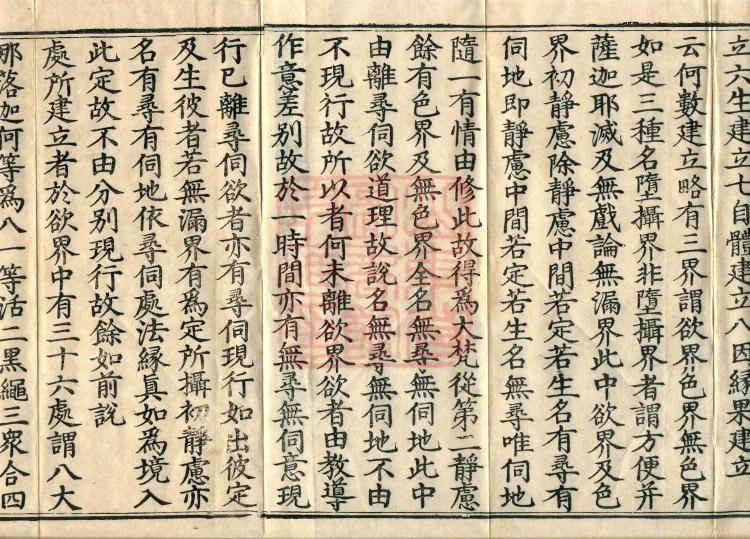 立六生建立七自體建立八因緣果建立
云何數建立略有三界謂欲界色界無色界
如是三種名墮攝界非墮攝界者謂方便并
薩迦耶滅及無戲論無漏界此中欲界及色
界初靜慮除靜慮中間若定若生名有尋有
伺地即靜慮中間若定若生名無尋唯伺地
隨一有情由修此故得為大梵從第二靜慮
餘有色界及無色界全名無尋無伺地此中
由離尋伺欲道理故說名無尋無伺地不由
不現行故所以者何未離欲界欲者由教導
作意差別故於一時間亦有無尋無伺意現
行已離尋伺欲者亦有尋伺現行如出彼定
及生彼者若無漏界有為定所攝初靜慮亦
名有尋有伺地依尋伺處法緣真如為境入
此定故不由分別現行故餘如前說
處所建立者於欲界中有三十六處謂八大
那落迦何等為八一等活二黑繩三眾合四